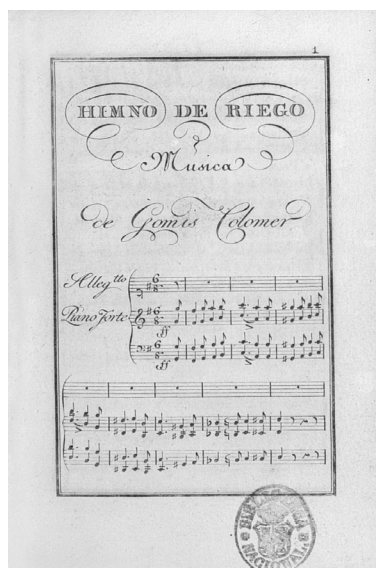 1
HIMNO DE RIEGO
Musica
de Gomis Colomer
Alleg.tto
Piano Forte
6
8
6
8
ff
6
8
ff
BIBLIOTECA
NACIONAL